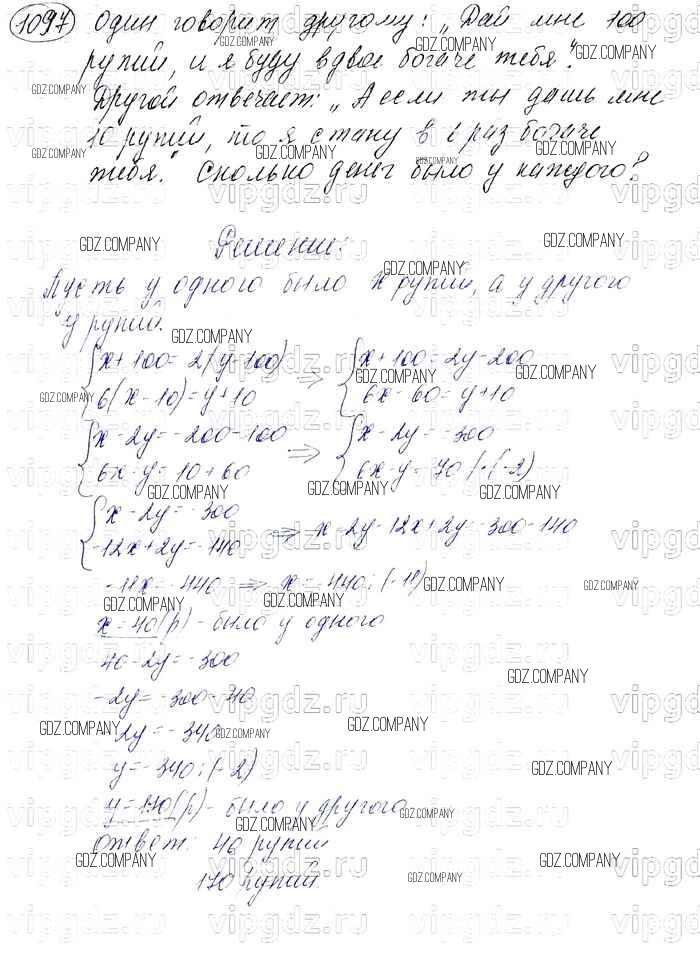 1097 Один говорит другому: „Дай мне 100
рупий, и я буду вдвое богаче тебя".
Другой отвечает: „А если ты дашь мне
10 рупий, то я стану в 6 раз богаче
тебя." Сколько денег было у каждого?
Решение:
Пусть у одного было x рупий, а у другого
y рупий.
{x+100=2(y-100) => {x+100=2y-200
6(x-10)=y+10 6x-60=y+10
{x-2y=-200-100 => {x-2y=-300
6x-y=10+60 6x-y=70 |·(-2)
{x-2y=-300
-12x+2y=-140 => x-2y-12x+2y=-300-140
-11x=-440 => x=-440:(-11)
x=40(р) - было у одного
40-2y=-300
-2y=-300-40
-2y=-340
y=-340:(-2)
y=170(р) - было у другого
Ответ: 40 рупий
170 рупий.
GDZ.COMPANY
vipgdz.ru